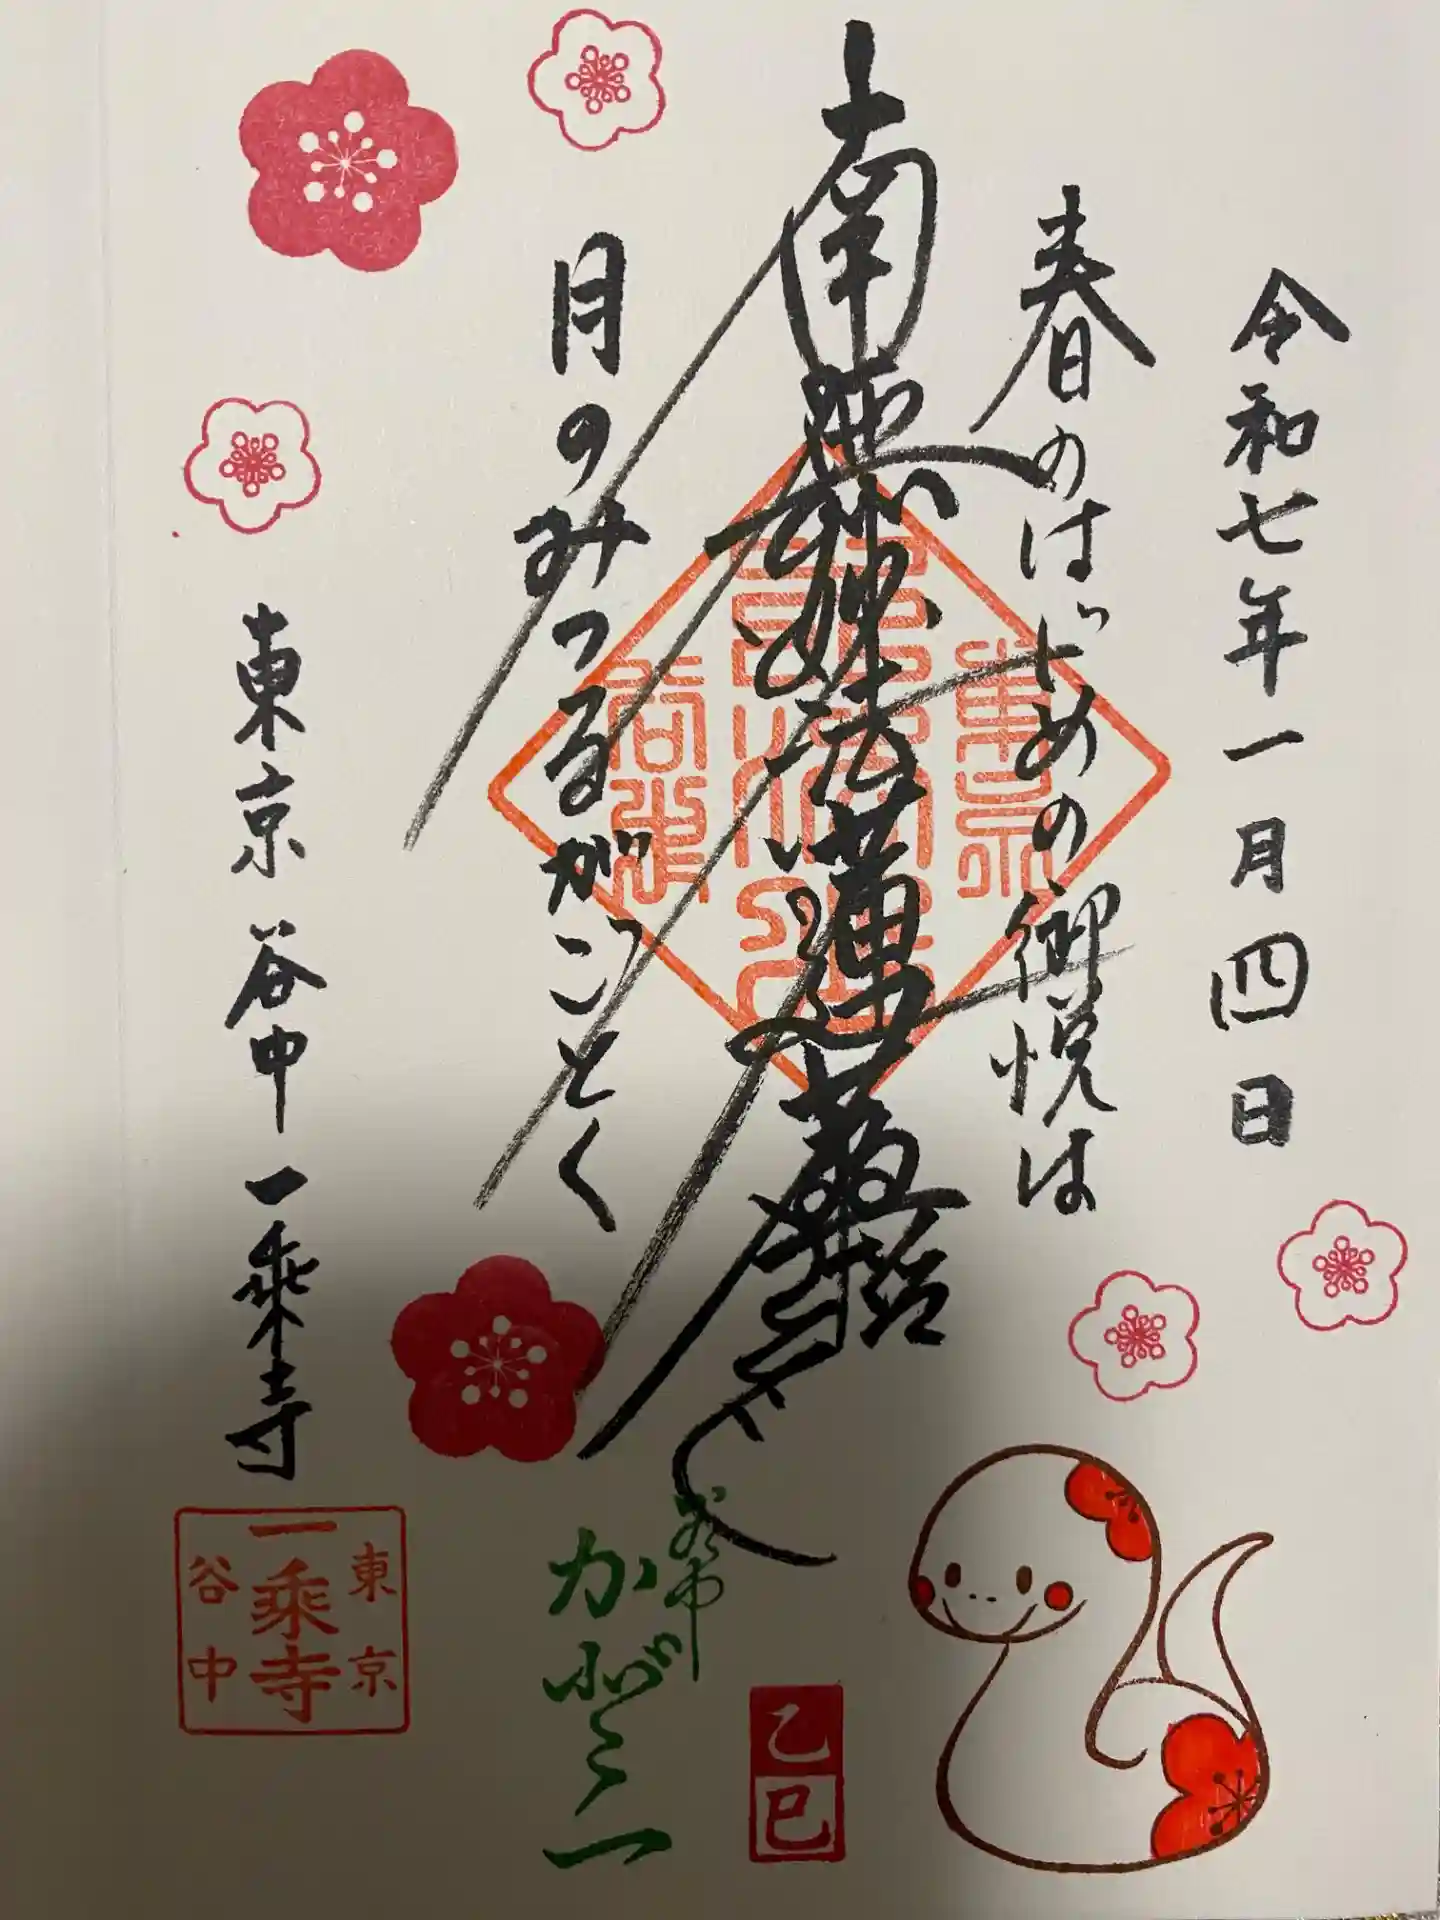 令和七年一月四日
春のはじめの御悦は
南無妙法蓮華経
月のみつるがごとく
東京 谷中 一乗寺
東京
一乗寺
谷中
乙巳